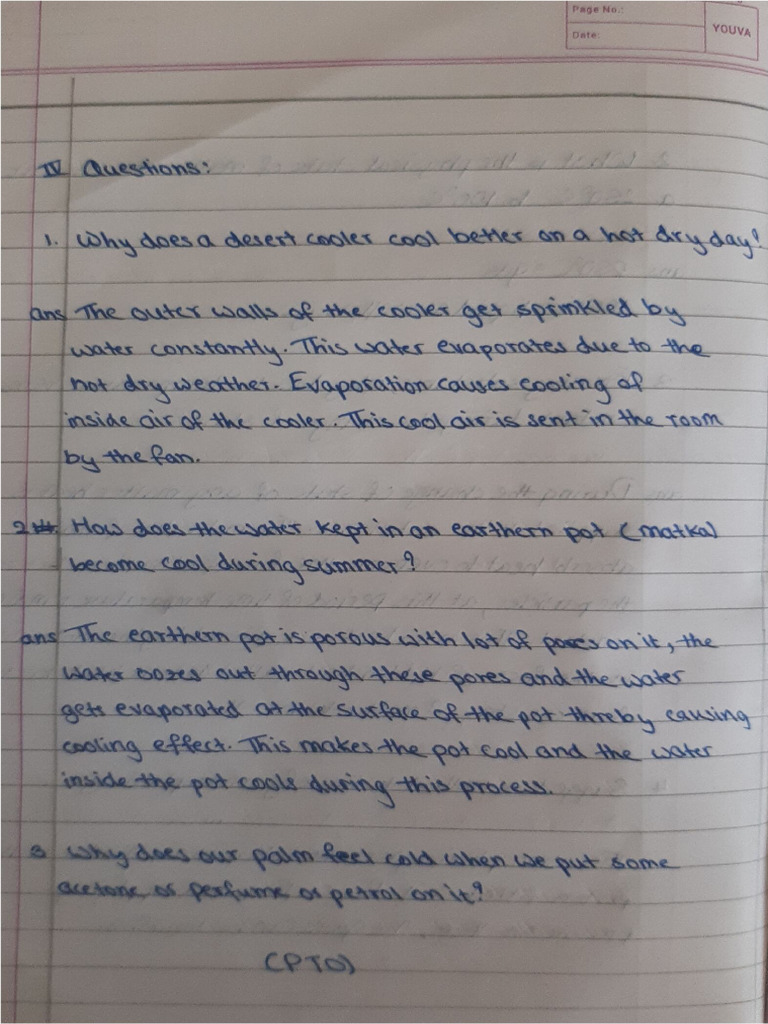 Page No.:
Date:
YOUVA
IV Questions:
1. Why does a desert cooler cool better on a hot dry day?
ans The outer walls of the cooler get sprinkled by
water constantly. This water evaporates due to the
hot dry weather. Evaporation causes cooling of
inside air of the cooler. This cool air is sent in the room
by the fan.
2 How does the water kept in an earthern pot (matka)
become cool during summer?
ans The earthern pot is porous with lot of pores on it, the
water oozes out through these pores and the water
gets evaporated at the surface of the pot threby causing
cooling effect. This makes the pot cool and the water
inside the pot cools during this process.
3 Why does our palm feel cold when we put some
acetone or perfume or petrol on it?
(PTO)